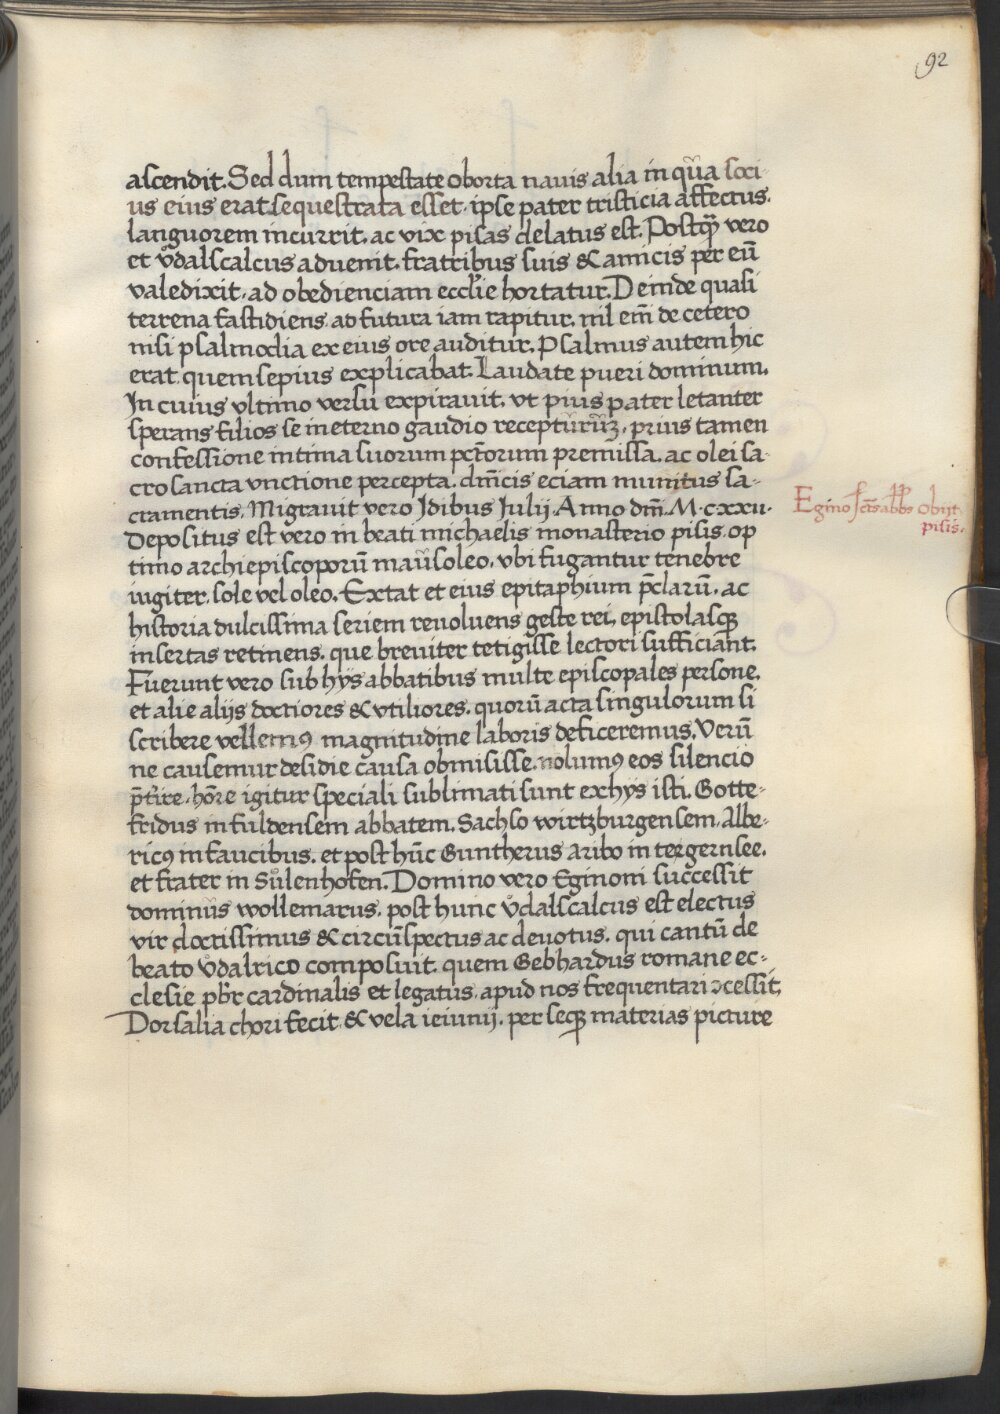 92
ascendit. Sed dum tempestate oborta navis alia in qūa soci-
us eius erat sequestrata esset. ipse pater tristicia affectus.
languorem incurrit. ac vix pisas delatus est. Postqꝫ vero
et vͦdalscalcus advenit. fratribus suis & amicis per eū
valedixit. ad obedienciam eccl̄ie hortatur. Deinde quasi
terrena fastidiens. ad futura iam rapitur. nil em̄ de cetero
nisi psalmodia ex eius ore auditur. Psalmus autem hic
erat quem sepius explicabat. Laudate pueri dominum.
In cuius vltimo versu expiravit. vt pius pater letanter
sperans filios se in eterno gaudio recepturūꝫ. prius tamen
confessione intima suorum pct̄orum premissa. ac olei sa-
cro sancta vnctione percepta. dn̄icis eciam munitus sa-
cramentis. Migravit vero Idibus Iulij. Anno dm̄. M.c.xxij.
Egino sct̄s abbs obijt
pisis.
Depositus est vero in beati michaelis monasterio pisis. op
timo archiepiscoporū maūsoleo. vbi fugantur tenebre
iugiter. sole vel oleo. Extat et eius epitaphium p̄clarū. ac
historia dulcissima seriem revoluens geste rei. epistolasqꝫ
insertas retinens. que breviter tetigisse lectori sufficiant.
Fuerunt vero sub hijs abbatibus multe episcopales persone.
et alie alijs doctiores & vtiliores. quorū acta singulorum si
scribere vellemꝰ magnitudine laboris deficeremus. Verū
ne causemur desidie causa obmisisse. nolumꝰ eos silencio
p̄t'ire. hōre igitur speciali sublimati sunt ex hijs isti. Gotte-
fridus in fuldensem abbatem. Sachso wirtzburgensem. Albe-
ricꝰ in faucibus. et post hūc Guntherus aribo in tergernsee.
et frater in Sůlenhofen. Domino vero Eginoni successit
dominūs wollemarus. post hunc vͦdalscalcus est electus
vir doctissimus & circūspectus ac devotus. qui cantū de
beato vͦdalrico composuit. quem Gebhardus romane ec-
clesie pb̄r cardinalis et legatus. apud nos frequentari ɔcessit.
Dorsalia chori fecit & vela ieiunij. per seqꝫ materias picture